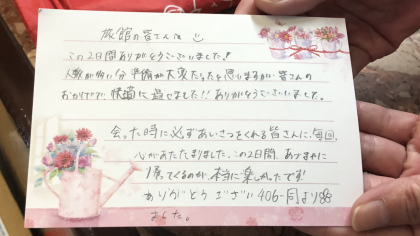 旅館の皆さんへ
この2日間ありがとうございました!
人数が多い分準備が大変だったと思いますが、皆さんの
おかげで、快適に過せました!!ありがとうございました。
会った時に必ずあいさつをくれる皆さんに、毎回、
心があたたまりました。この2日間、あづまやに
帰ってくるのが、本当に楽しかったです!
ありがとうござい
ました。
406一同より